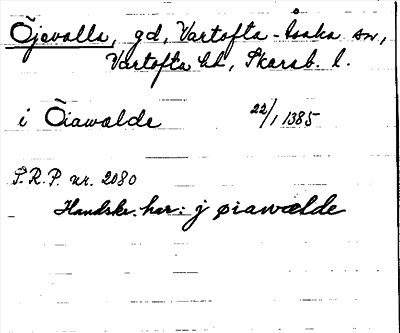 Öjavalla, gd, Vartofta-Åsaka sn,
Vartofta hd, Skarab. l.
i Öiawalde 22/1 1385
S.R.P. nr. 2080
Handskr. har: j øiawælde